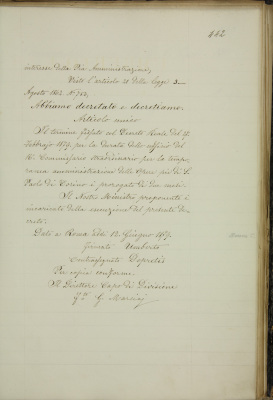 442
interesse della Pia Amministrazione,
Visto l'articolo 21 della legge 3
Agosto 1862 N° 753,
Abbiamo decretato e decretiamo
Articolo unico
Il termine fissato nel Decreto Reale del 16
Febbrajo 1879 per la durata dell'ufficio del
R. Commissario straordinario per la tempo
ranea amministrazione delle Opere pie di S.
Paolo di Torino è prorogato di due mesi.
Il Nostro Ministro proponente è
incaricato della esecuzione del presente De
creto.
Dato a Roma addì 12 Giugno 1879.
firmato Umberto
Contrassegnato Depretis
Per copia conforme
Il Direttore Capo di Divisione
G.